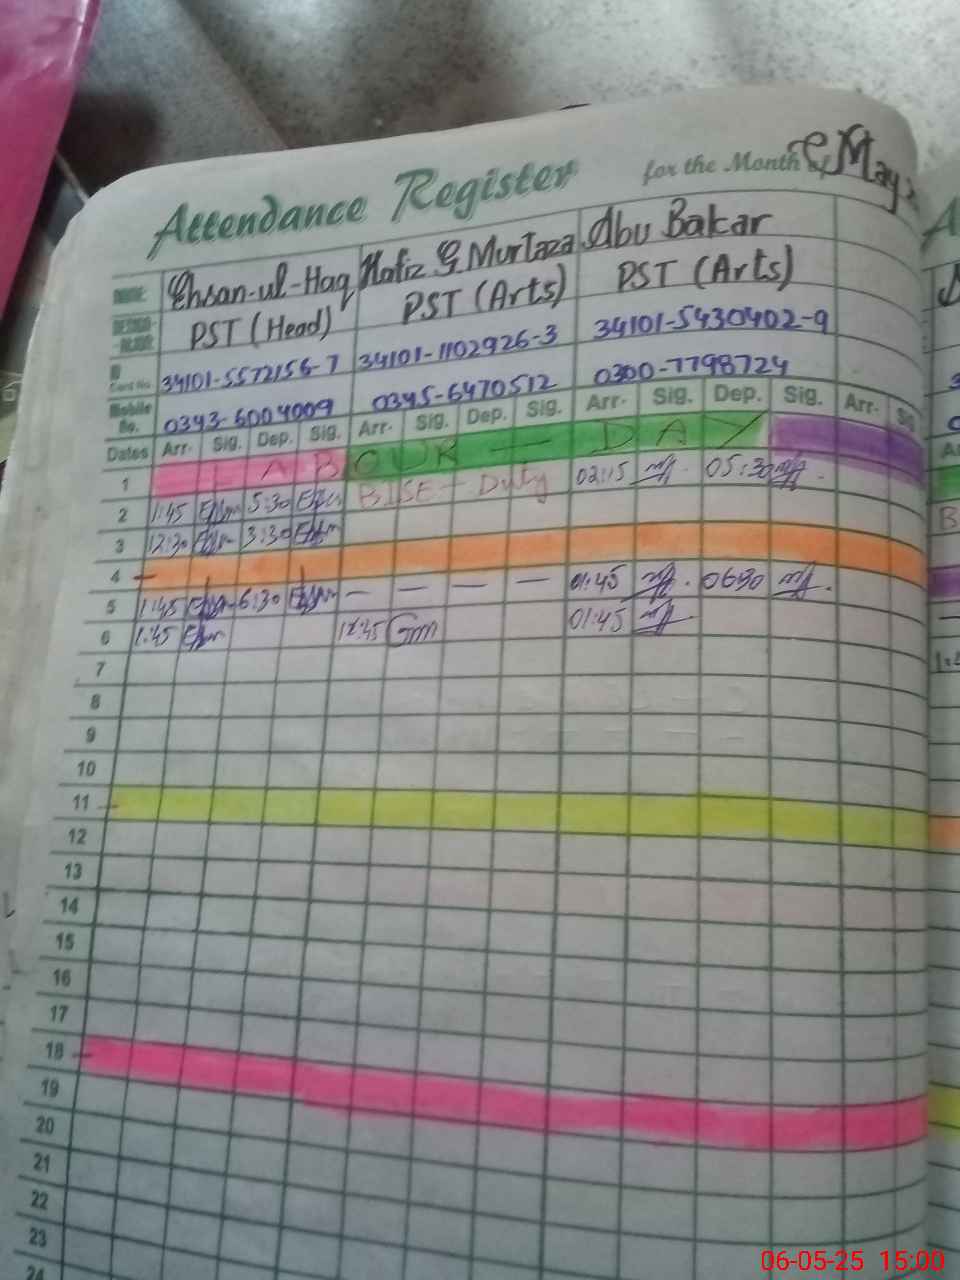 Attendance Register for the Month of May
NAME: Ehsan-ul-Haq Hafiz G Murtaza Abu Bakar
DESIGNATION: PST (Head) PST (Arts) PST (Arts)
ID Card No. 34101-5572156-7 34101-1102926-3 34101-5430402-9
Mobile No. 0343-6004009 0345-6470512 0300-7798724
Dates Arr. Sig. Dep. Sig. Arr. Sig. Dep. Sig. Arr. Sig. Dep. Sig. Arr.
1 LABOUR - DAY
2 1:45 5:30 BISE - Duty 02:15 05:30
3 12:30 3:30
4
5 1:45 6:30 — — — — 01:45 06:30
6 1:45 12:45 01:45
7
8
9
10
11
12
13
14
15
16
17
18
19
20
21
22
23
24
06-05-25 15:00